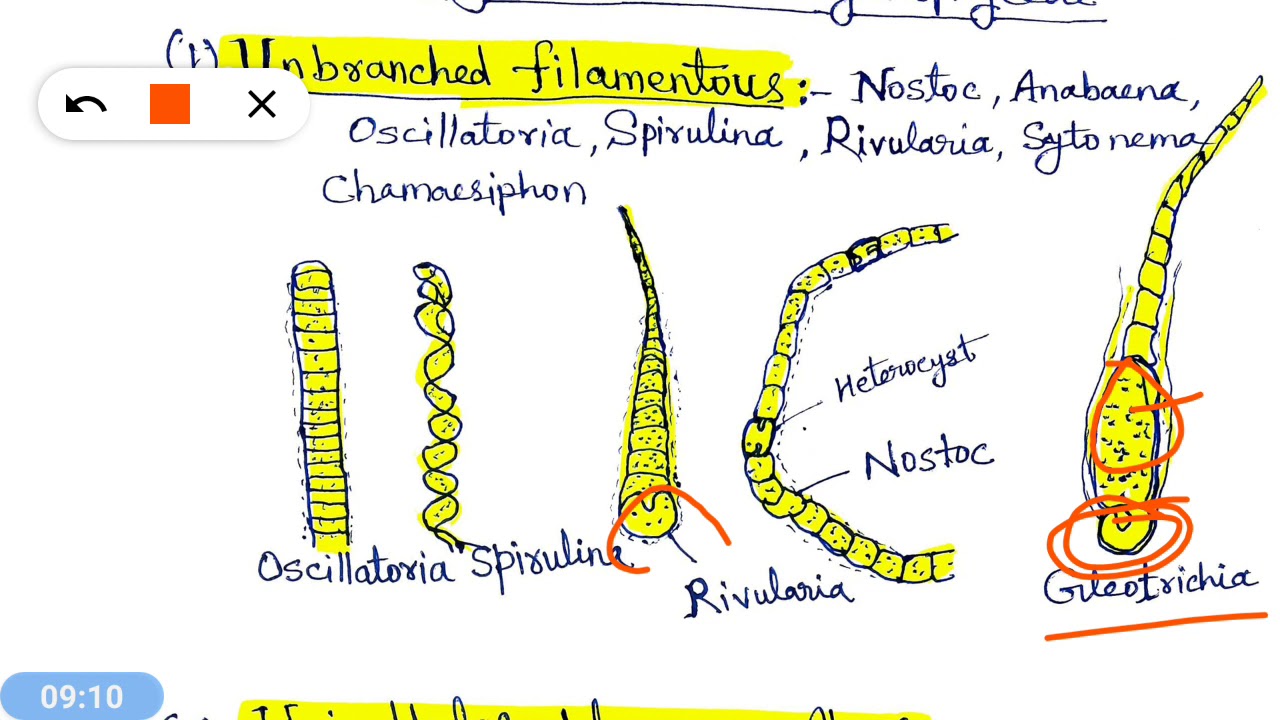 (1) Unbranched filamentous :- Nostoc, Anabaena,
Oscillatoria, Spirulina, Rivularia, Sytonema
Chamaesiphon
Heterocyst
Nostoc
Oscillatoria Spirulina
Rivularia
Gileotrichia
09:10